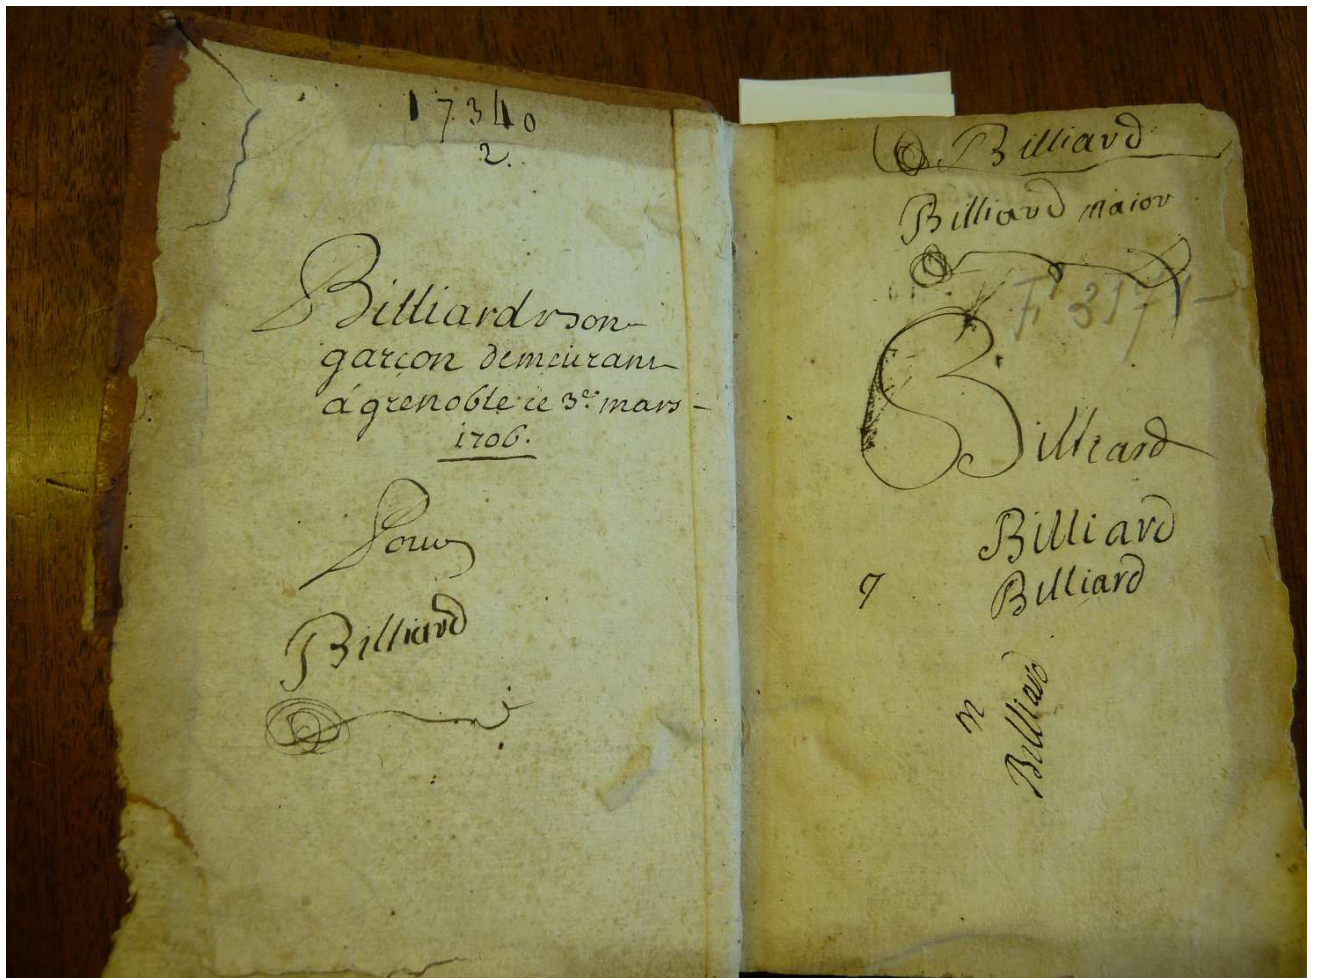 17340
2.
Billiard son
garçon demeurant
á grenoble ce 3e mars
1706.
Pour
Billiard
Billiard
Billiard maior
F 3171
Billiard
Billiard
Billiard
9
m
Billiard